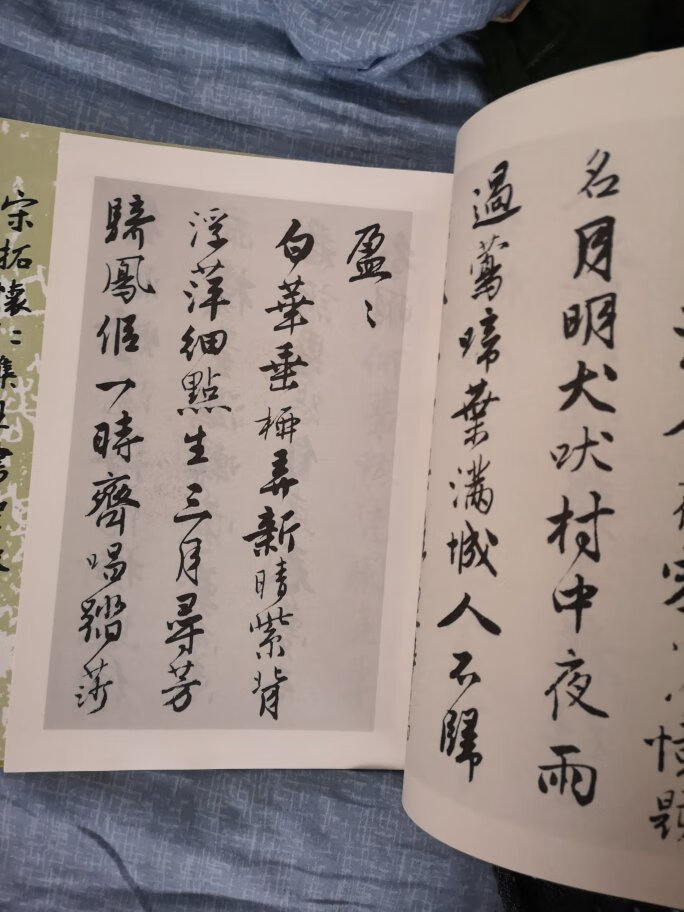 名月明犬吠村中夜雨
過鶯啼葉滿城人不歸
盈〻
白華垂弄新晴紫背
浮萍細點生三月尋芳
鳳侶一時齊唱踏莎
宋拓懷